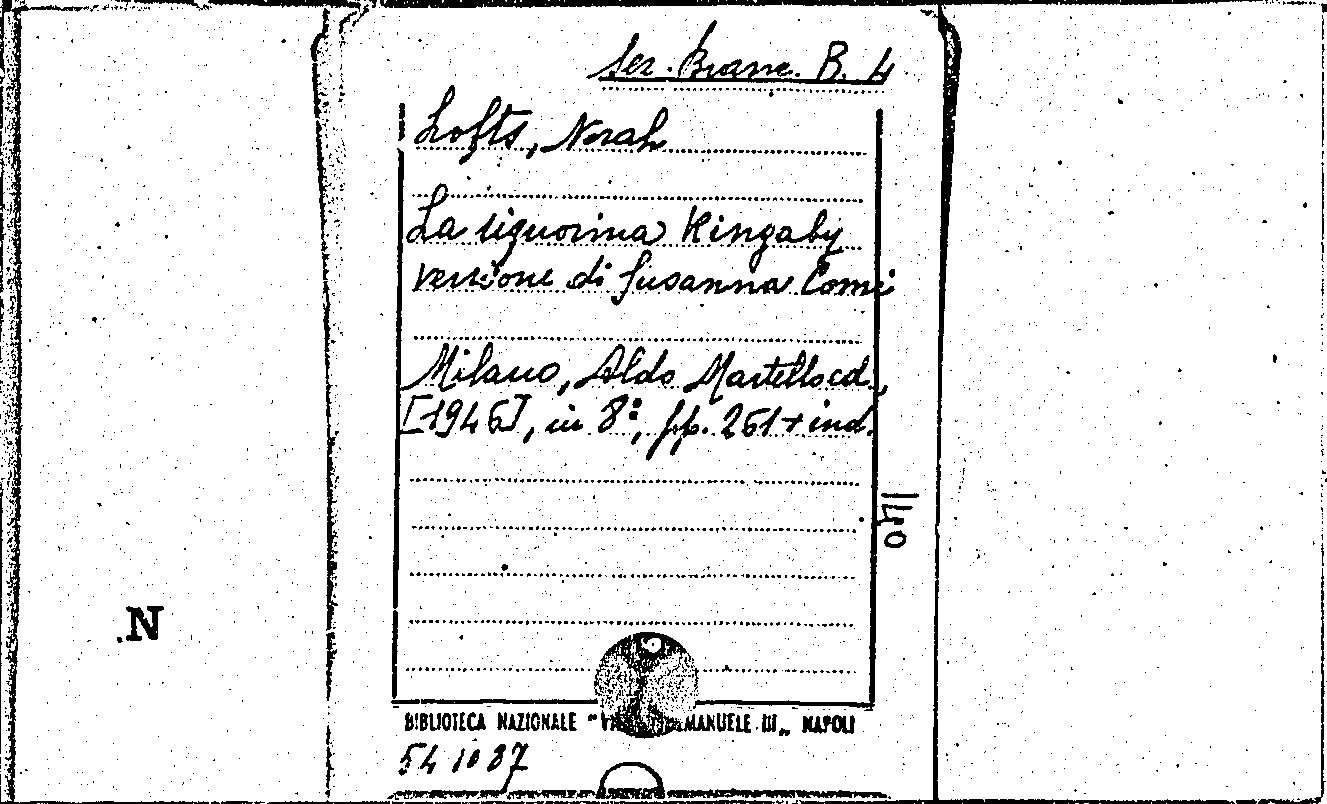 Ser. Brane. B. 4
Lofts, Norah
La signorina Kingaby
versione di Susanna Comi
Milano, Aldo Martello ed.,
[1946], in 8°, pp. 261 + ind.
1140
.N
BIBLIOTECA NAZIONALE "VITT. EMANUELE III„ NAPOLI
541087